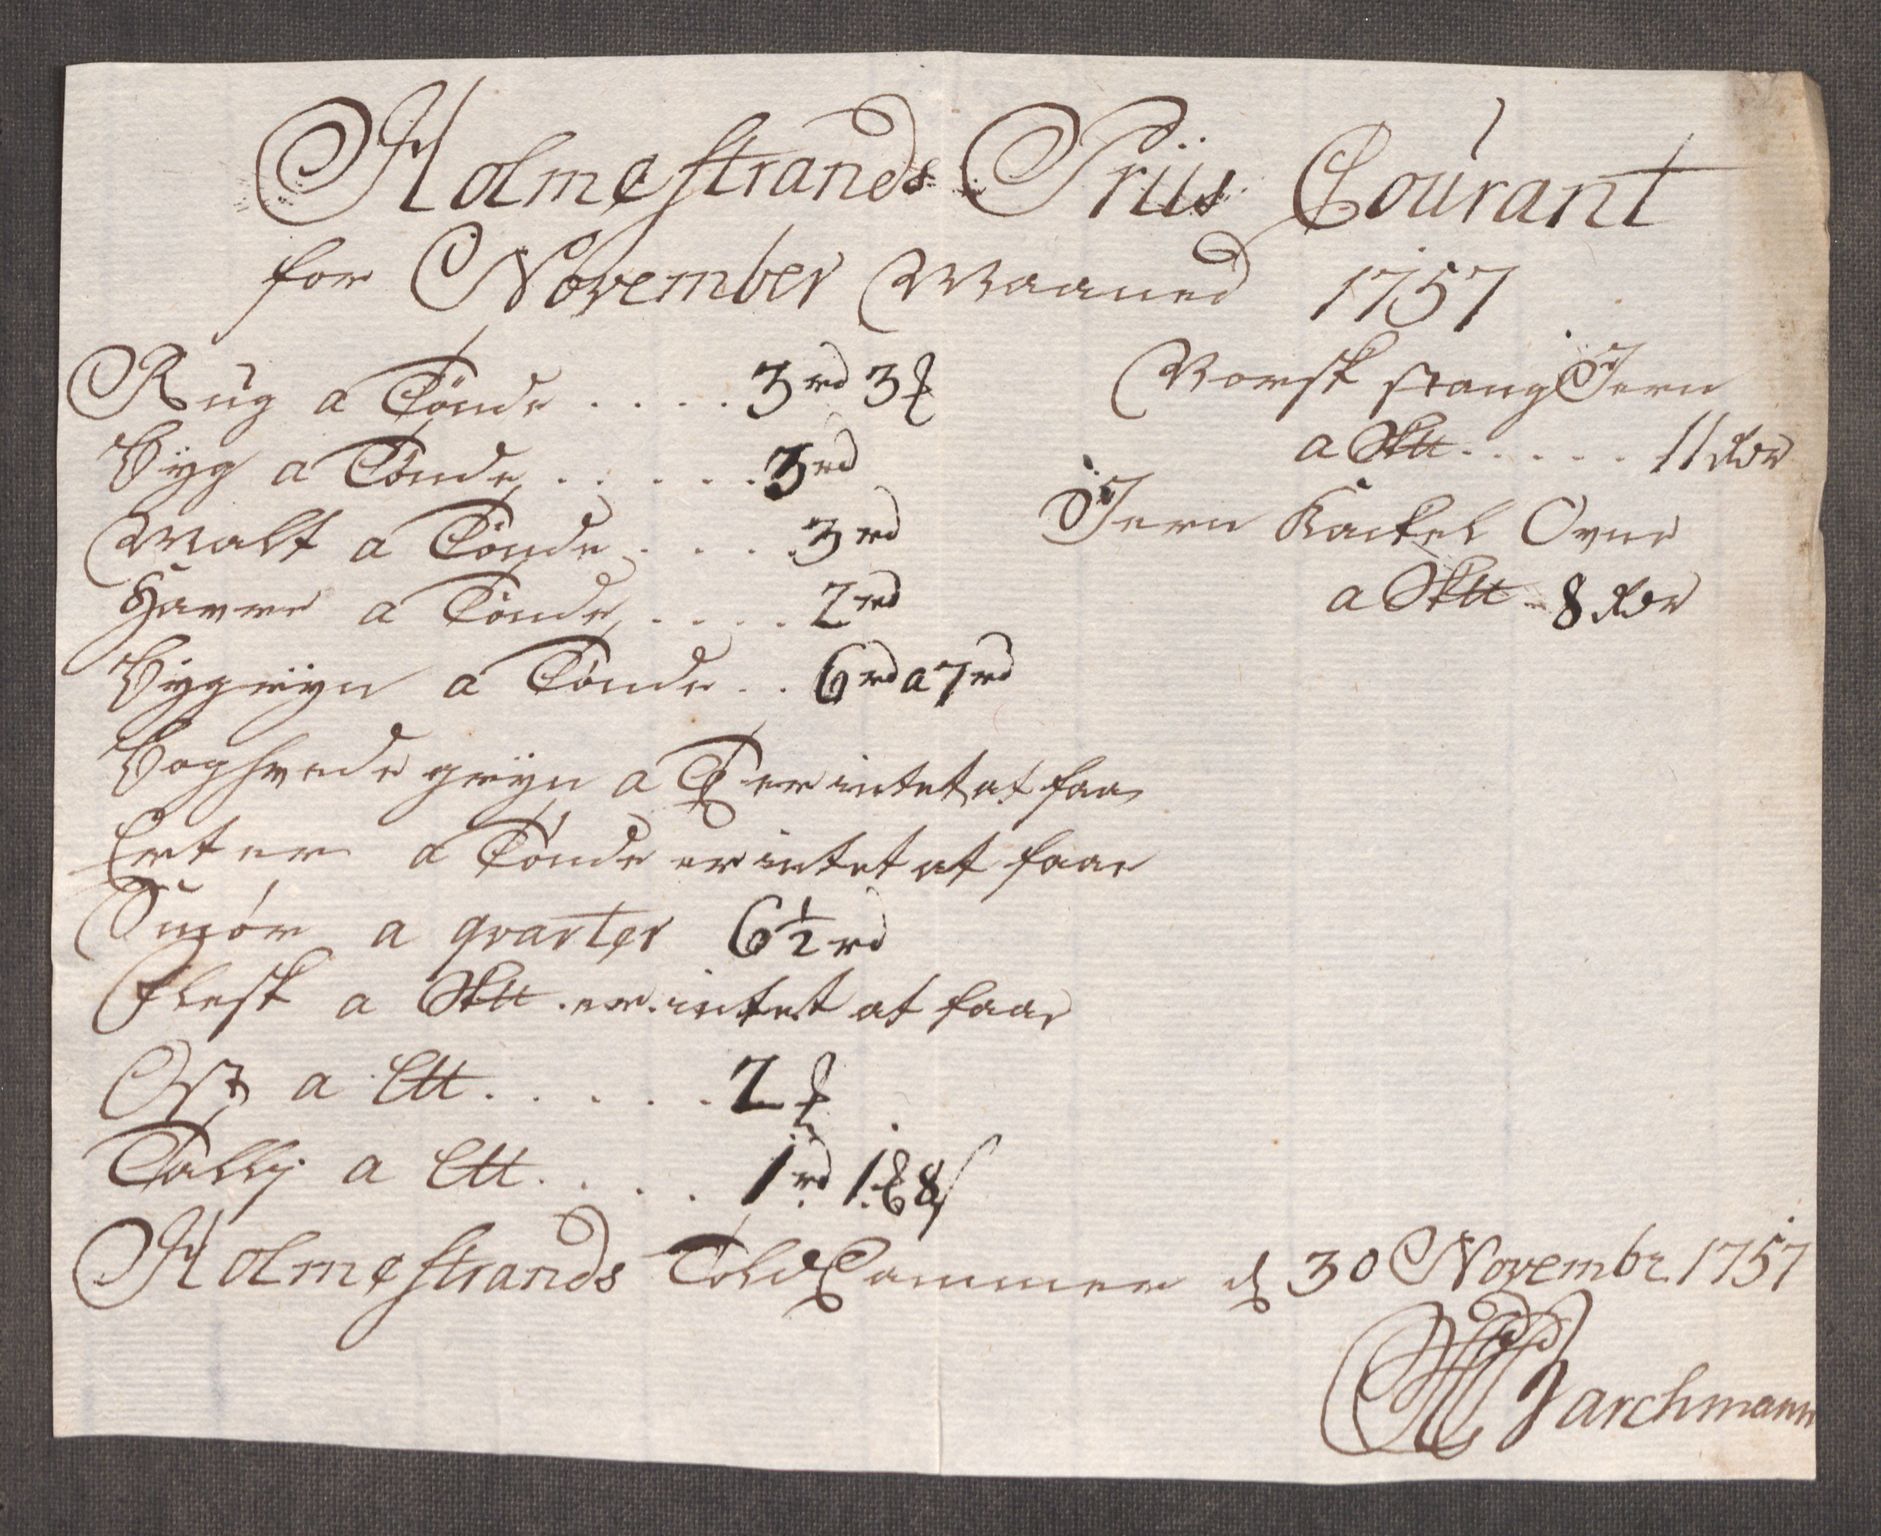 Holmestrands Priis Courant
for November Maaned 1757
Rug a Tønde .... 3 rd 3 ꝑ
Byg a Tønde ..... 3 rd
Malt a Tønde .... 3 rd
Havre a Tønde .... 2 rd
Byggrÿn a Tønde .. 6 rd a 7 rd
Boghvede grÿn a T er intet at faa
Erter a Tønde er intet at faae
Smør a qvarter 6 1/2 rd
Flesk a Sktt er intet at faae
Ost a Ltt ..... 2
Tallig a Ltt .... 1 rd 1 8 s
Norsk stang Jern
a Sktt ..... 11 Rdr
Jern Kackel Ovne
a Sktt 8 Rdr
Holmestrands Told Cammer d 30 Novembr. 1757
Barchmann